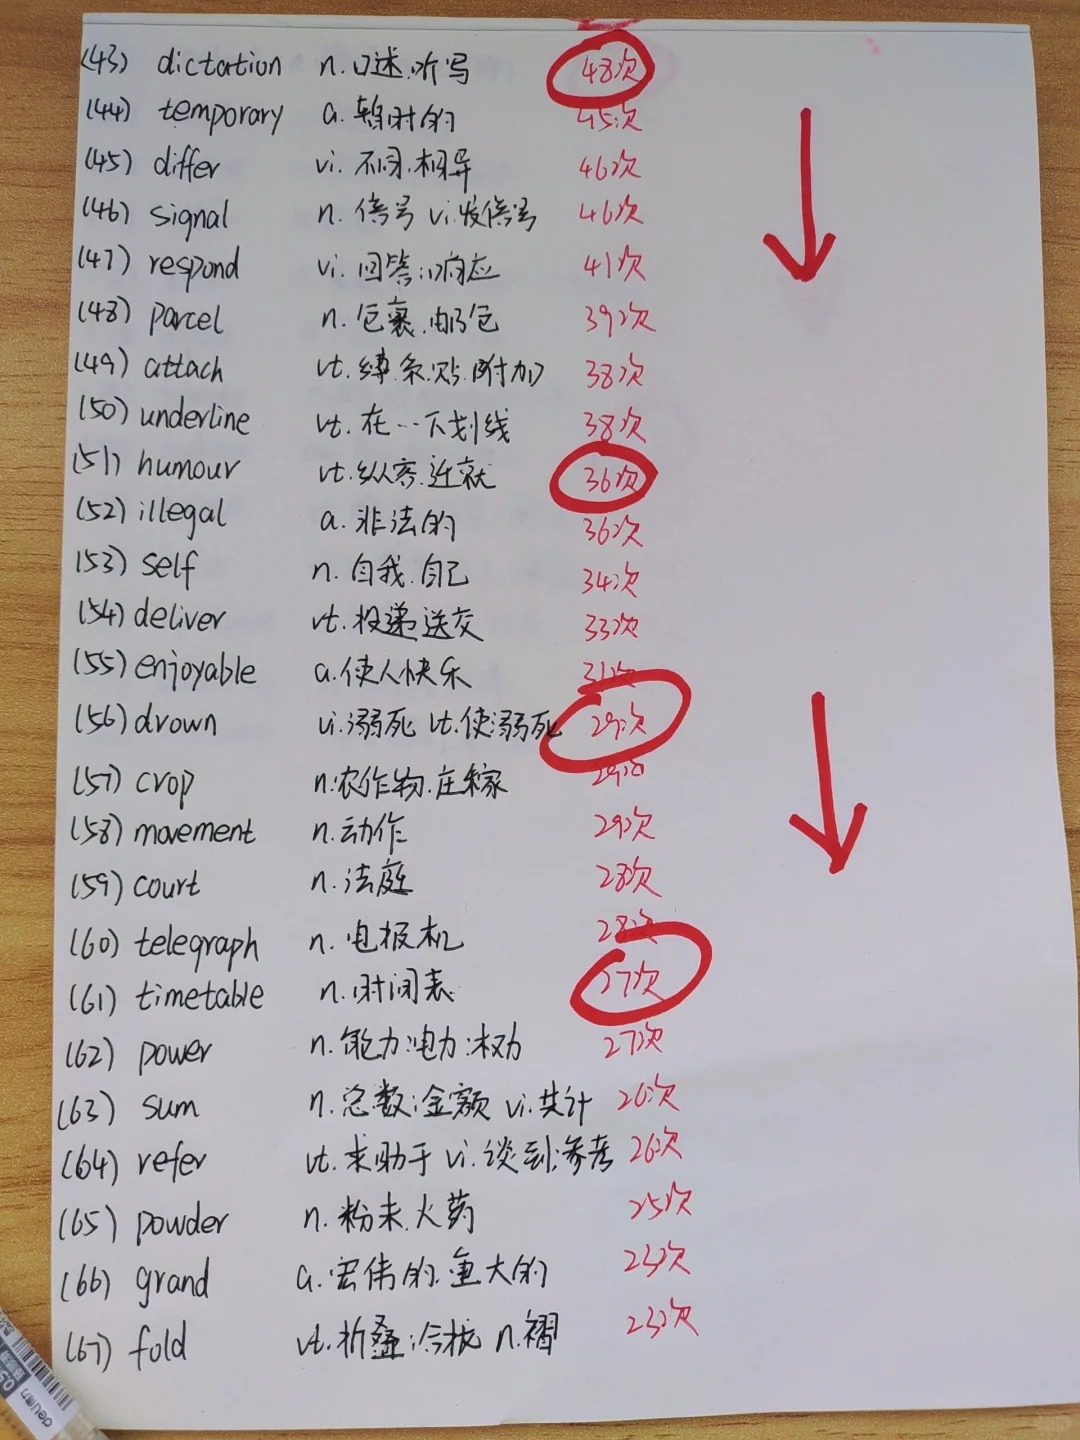 (43) dictation n.口述.听写 48次
(44) temporary a.暂时的 45次
(45) differ vi.不同.相异 46次
(46) signal n.信号 vi.发信号 46次
(47) respond vi.回答;响应 41次
(48) parcel n.包裹.邮包 39次
(49) attach vt.缚.系.贴.附加 38次
(50) underline vt.在…下划线 38次
(51) humour vt.纵容.迁就 36次
(52) illegal a.非法的 36次
(53) self n.自我.自己 34次
(54) deliver vt.投递送交 33次
(55) enjoyable a.使人快乐 31次
(56) drown vi.溺死 vt.使溺死 29次
(57) crop n.农作物.庄稼 29次
(58) movement n.动作 29次
(59) court n.法庭 28次
(60) telegraph n.电报机 28次
(61) timetable n.时间表 27次
(62) power n.能力;电力;权力 27次
(63) sum n.总数;金额 vi.共计 26次
(64) refer vt.求助于 vi.谈到;参考 26次
(65) powder n.粉末.火药 25次
(66) grand a.宏伟的.重大的 23次
(67) fold vt.折叠; n.褶 23次
deli得力